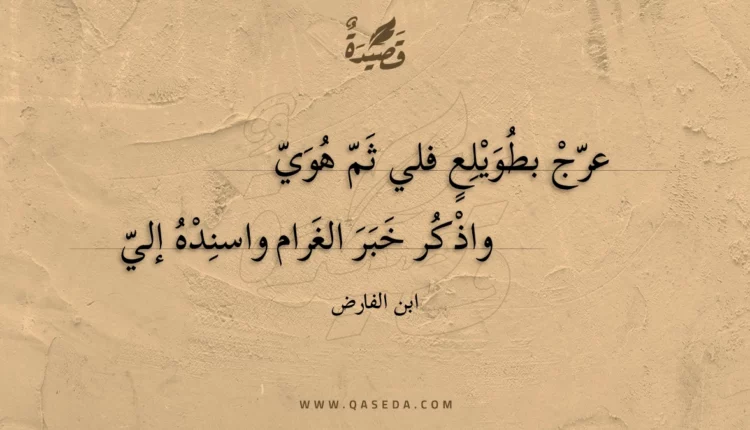 قَصِيدَةٌ
عرّجْ بطُوَيْلِعٍ فلي ثَمّ هُوَيّ
واذْكُر خَبَرَ الغَرام واسنِدْهُ إليّ
ابن الفارض
WWW.QASEDA.COM